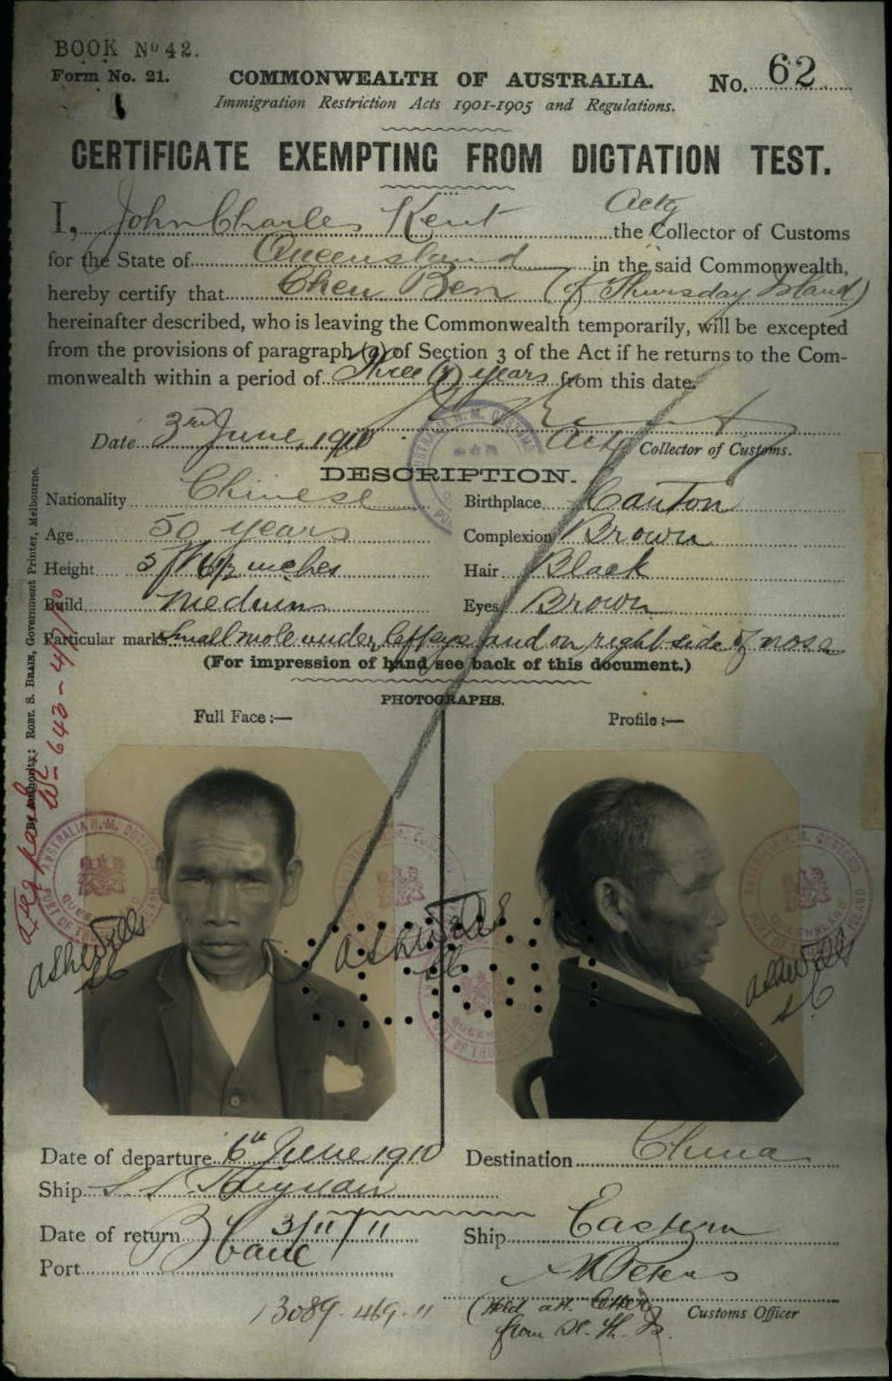 BOOK No 42.
Form No. 21.
COMMONWEALTH OF AUSTRALIA.
No. 62
Immigration Restriction Acts 1901-1905 and Regulations.
CERTIFICATE EXEMPTING FROM DICTATION TEST.
I, John Charles Kent Actg the Collector of Customs
for the State of Queensland in the said Commonwealth,
hereby certify that Chen Ben (of Thursday Island)
hereinafter described, who is leaving the Commonwealth temporarily, will be excepted
from the provisions of paragraph (a) of Section 3 of the Act if he returns to the Com-
monwealth within a period of Three years from this date.
Date 3rd June, 1910
Actg Collector of Customs.
DESCRIPTION.
Nationality Chinese
Birthplace Canton
Age 50 years
Complexion Brown
Height 5 inches
Hair Black
Build Medium
Eyes Brown
Particular marks Small mole under left eye and on right side of nose
(For impression of hand see back of this document.)
PHOTOGRAPHS.
Full Face :—
Profile :—
Authority: Robt. S. Brain, Government Printer, Melbourne.
Date of departure 6th June 1910
Destination China
Ship S.S.
Date of return 3/11/11
Ship Eastern
Port
Peters
Customs Officer
13089
from